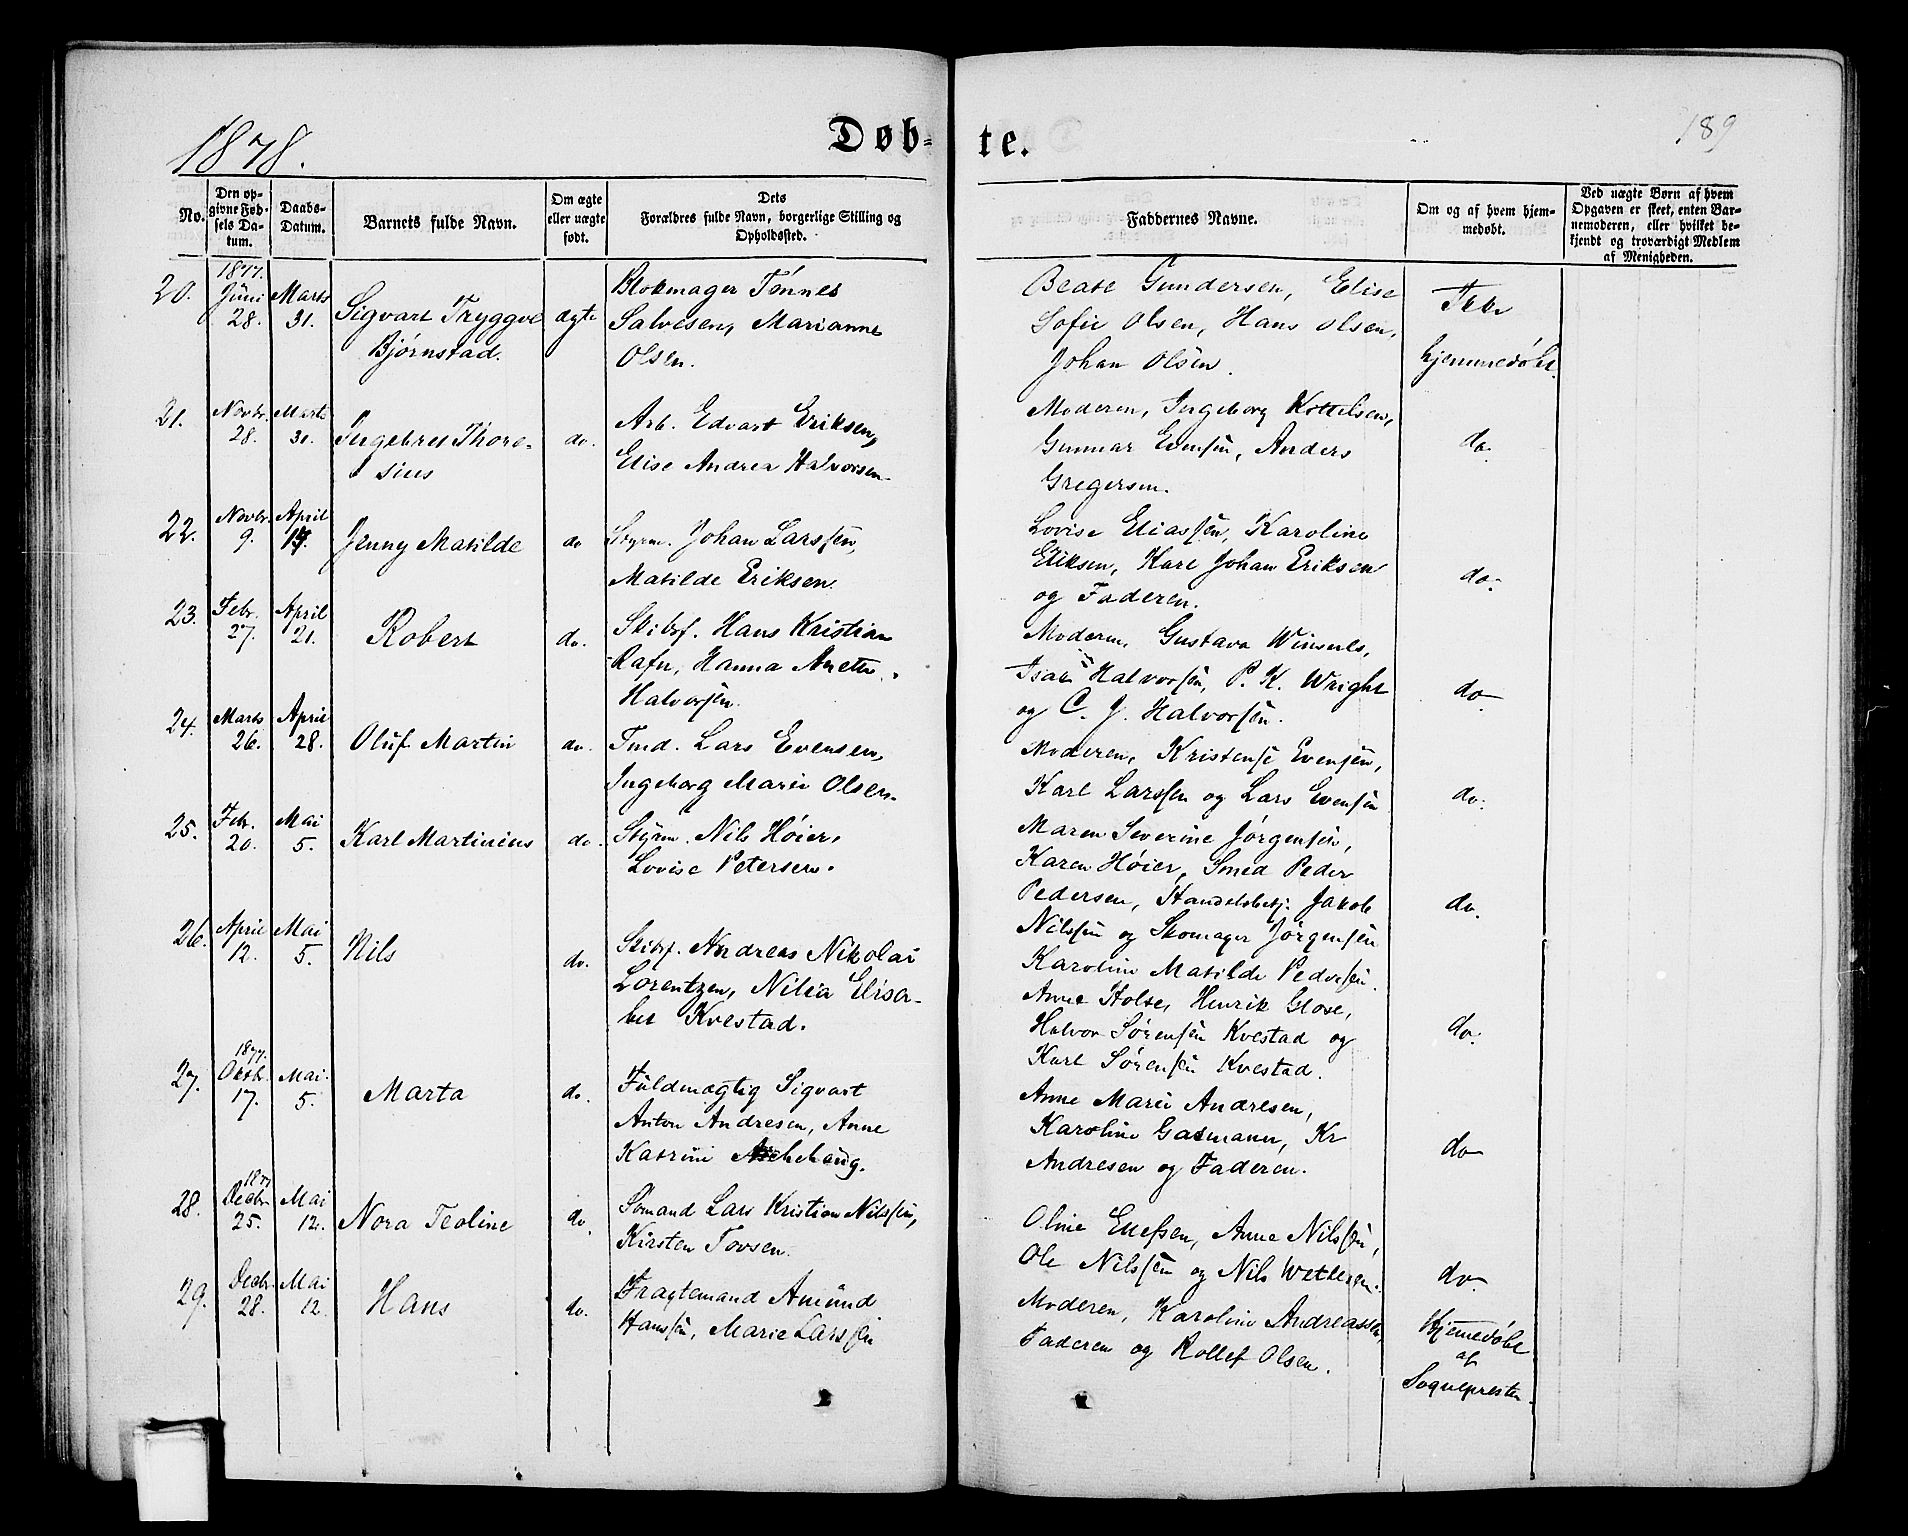 1878.
Døb-
te.
189
No.
Den op-
givne Fød-
sels Da-
tum.
Daabs-
Datum.
Barnets fulde Navn.
Om ægte
eller uægte
født.
Dets
Forældres fulde Navn, borgerlige Stilling og
Opholdssted.
Faddernes Navne.
Om og af hvem hjem-
medøbt.
Ved uægte Børn af hvem
Opgaven er skeet, enten Bar-
nemoderen, eller hvilket be-
kjendt og troværdigt Medlem
af Menigheden.
20.
1877.
Juni
28.
Marts
31.
Sigvart Tryggve
Bjørnstad.
ægte
Blokmager Tønnes
Salvesen, Marianne
Olsen.
Beate Gundersen, Elise
Sofie Olsen, Hans Olsen,
Johan Olsen.
Ikke
hjemmedøbt.
21.
Novbr.
28.
Marts
31.
Ingebret Thore-
sius
do.
Arb. Edvart Eriksen,
Elise Andrea Halvorsen
Moderen, Ingeborg Kittelsen,
Gunnar Evensen, Anders
Gregersen.
do.
22.
Novbr.
9.
April
Jenny Matilde
do
Styrm. Johan Larssen,
Matilde Eriksen
Lovise Eliassen, Karoline
Eliksen, Karl Johan Eriksen
og Faderen.
do.
23.
Febr.
27.
April
21.
Robert
do.
Skibsf. Hans Kristian
Rafn, Hanna Anette
Halvorsen.
Moderen, Gustava
Halvorsen, P. K. Wright
og C. J. Halvorsen.
do
24.
Marts
26.
April
28.
Oluf Martin
do.
Tmd. Lars Evensen,
Ingeborg Marie Olsen.
Moderen, Kristense Evensen,
Karl Larssen og Lars Evensen
do.
25.
Febr.
20.
Mai
5.
Karl Martinius
do.
Styrm. Nils Høier,
Lovise Petersen.
Maren Severine Jørgensen,
Karen Høier, Smed Peder
Pedersen, Handelsbetj. Jakob
Nilssen og Skomager Jørgensen
do.
26.
April
12.
Mai
5.
Nils
do.
Skibsf. Andreas Nikolai
Lorentzen, Nilia Elisa-
bet Kvestad.
Karoline Matilde Pedersen.
Anne Holte, Henrik Glose,
Halvor Sørensen Kvestad og
Karl Sørensen Kvestad.
do.
27.
1877.
Oktbr.
17.
Mai
5.
Marta
do.
Fuldmægtig Sigvart
Anton Andresen, Anne
Katrine Aschehoug.
Anne Marie Andresen,
Karoline Gasmann, Kr
Andresen og Faderen.
do
28.
1877
Decbr
25.
Mai
12.
Nora Teoline
do.
Sømand Lars Kristian Nilssen,
Kirsten Tovsen.
Oline Ellefsen, Anne Nilssen,
Ole Nilssen og Nils
do
29.
Decbr.
28.
Mai
12.
Hans
do.
Fragtemand Amund
Hanssen, Marie Larssen
Moderen, Karoline Andreassen,
Faderen og Rollef Olsen.
Hjemmedøbt
af
Sognepresten